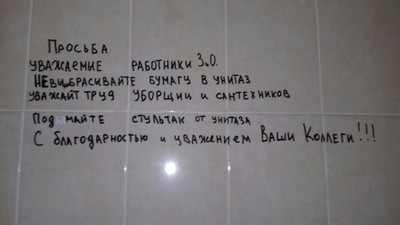 Просьба
уважаемые работники З.О.
Невыбрасивайте бумагу в унитаз
уважайт труд уборщиц и сантехников
Подымайте стульчак от унитаза
С благодарностью и уважением Ваши Коллеги!!!